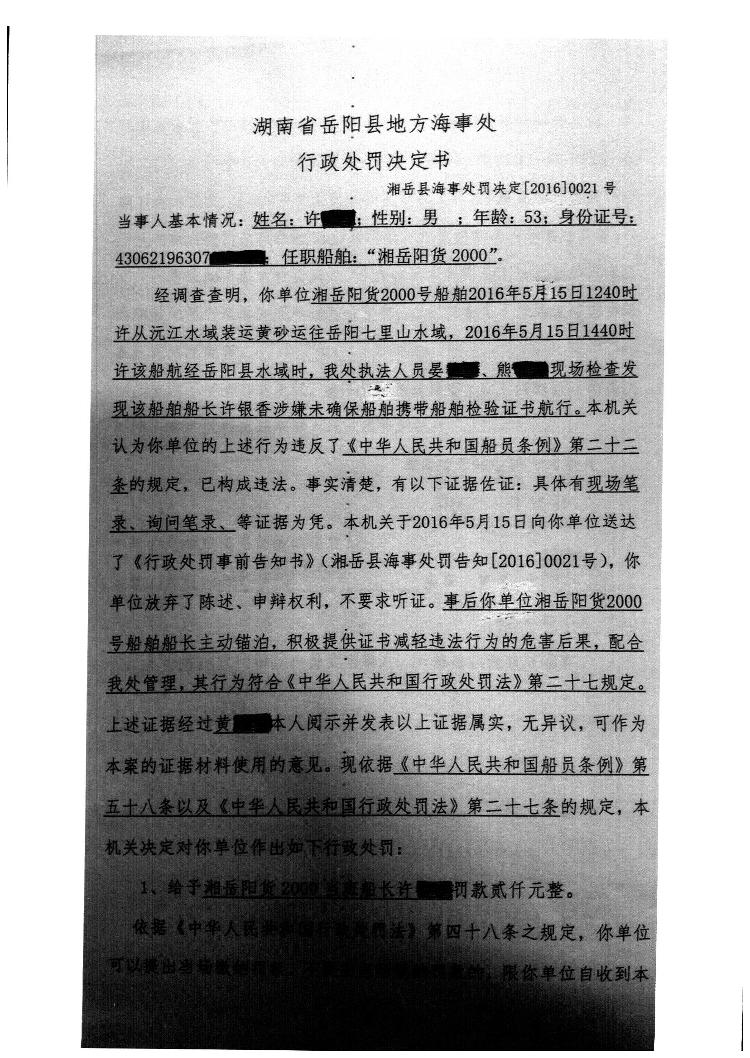 湖南省岳阳县地方海事处
行政处罚决定书
湘岳县海事处罚决定[2016]0021号
当事人基本情况：姓名：许 ；性别：男 ；年龄：53；身份证号：
43062196307 ；任职船舶：“湘岳阳货2000”。
经调查查明，你单位湘岳阳货2000号船舶2016年5月15日1240时
许从沅江水域装运黄砂运往岳阳七里山水域，2016年5月15日1440时
许该船航经岳阳县水域时，我处执法人员晏 、熊 现场检查发
现该船舶船长许银香涉嫌未确保船舶携带船舶检验证书航行。本机关
认为你单位的上述行为违反了《中华人民共和国船员条例》第二十二
条的规定，已构成违法。事实清楚，有以下证据佐证：具体有现场笔
录、询问笔录、等证据为凭。本机关于2016年5月15日向你单位送达
了《行政处罚事前告知书》（湘岳县海事处罚告知[2016]0021号），你
单位放弃了陈述、申辩权利，不要求听证。事后你单位湘岳阳货2000
号船舶船长主动锚泊，积极提供证书减轻违法行为的危害后果，配合
我处管理，其行为符合《中华人民共和国行政处罚法》第二十七规定。
上述证据经过黄 本人阅示并发表以上证据属实，无异议，可作为
本案的证据材料使用的意见。现依据《中华人民共和国船员条例》第
五十八条以及《中华人民共和国行政处罚法》第二十七条的规定，本
机关决定对你单位作出如下行政处罚：
1、给予湘岳阳货2000当班船长许 罚款贰仟元整。
依据《中华人民共和国行政处罚法》第四十八条之规定，你单位
可以提出当场缴纳 限你单位自收到本